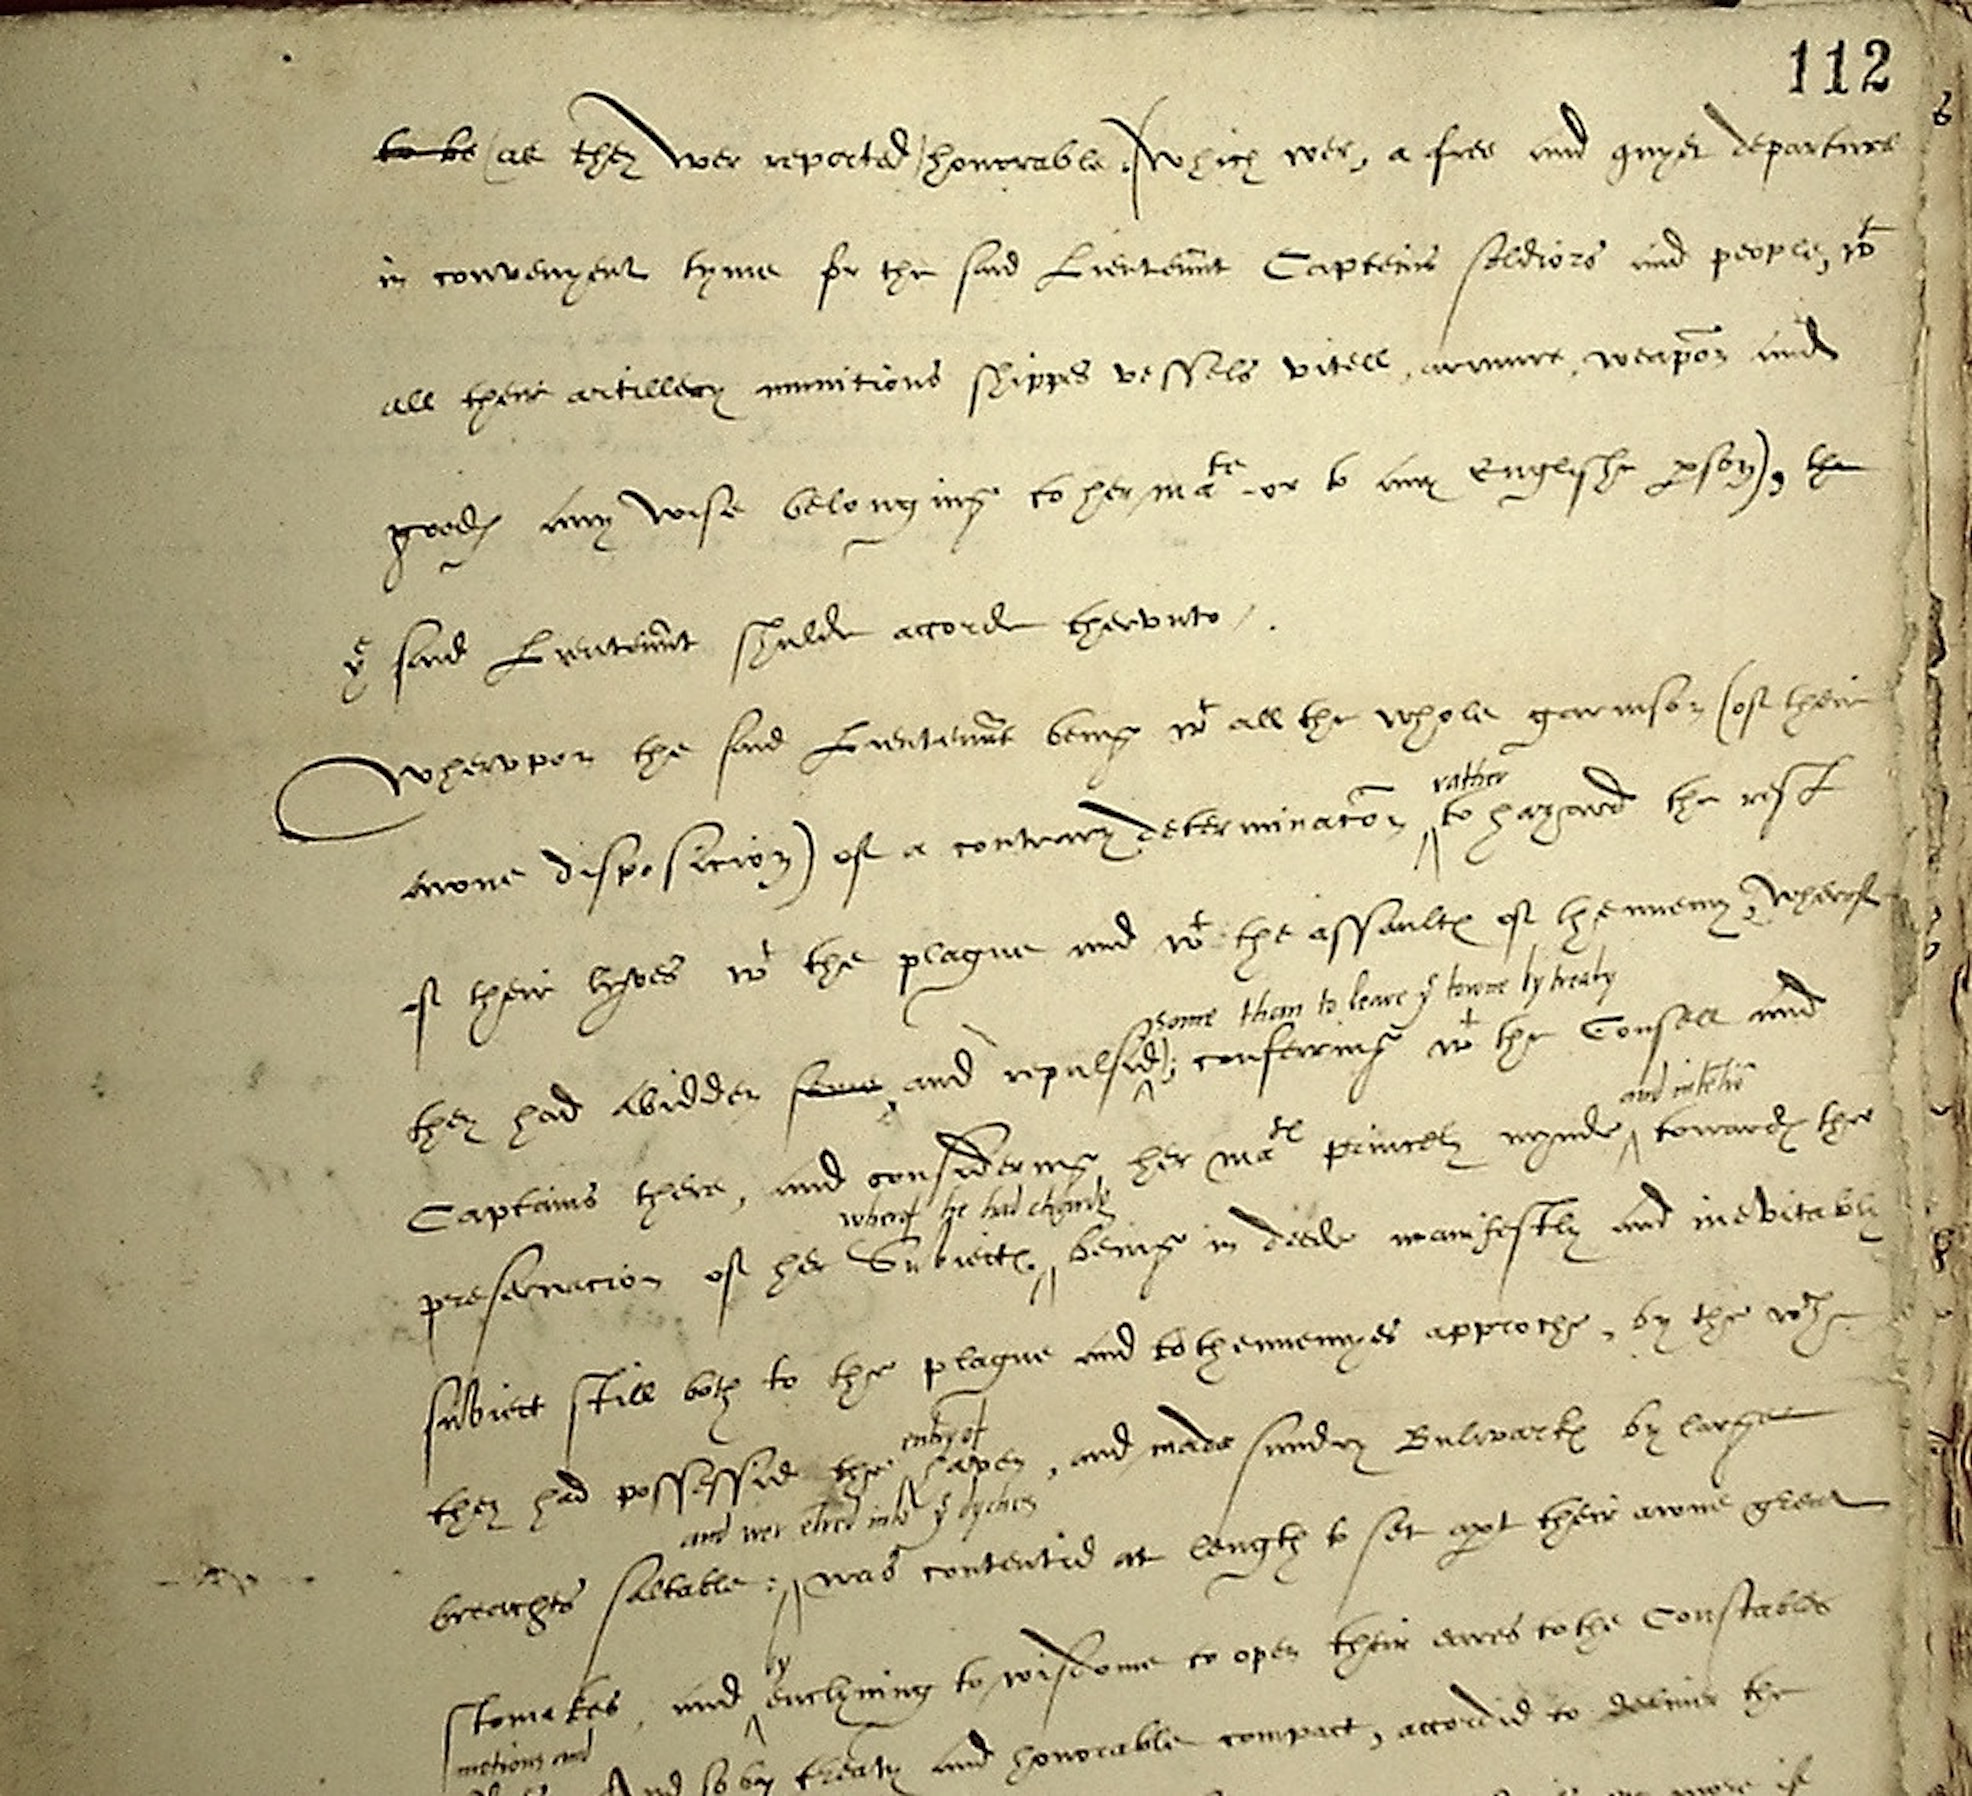 112
to be (as they wer reported) honorable. which wer, a free and quyet departure
in convenyent tyme for the said Lieutennt Captains soldiors and people, wt
all their artillery munitions shippes vessels vitell, armure, weapon and
goodes any wise belonging to her mate or to any Englishe person), the
ye said Lieutennt shulde accorde therunto /.
Wherupon the said Lieutennt being wt all the whole garnison (of their
rather
awne disposicion) of a contrary determinacon to hazard the rest
of their lyves wt the plague and wt the assaultes of thennemy, wherof
some them to leave ye towne by treaty
they had abidden some and repulsid); conferring wt the Consell and
and intetio
Captains there, and considering her mates princely mynde towardes the
wherof he had charde
preservacion of her Subiectes, being in deede manifestly and inevitably
subiect still both to the plague and to thennemyes approche, by the wch
entry of
they had possessid the haven, and made sundry Bulwarkes by large
and wer entred into ye dyches
breaches saltable: was contentid at length to set apt their awne great
by
stomakes, and enclyning to wisdome to open their eares to the Constables
motions and
And so by treaty and honorable compact, accordid to deliver the